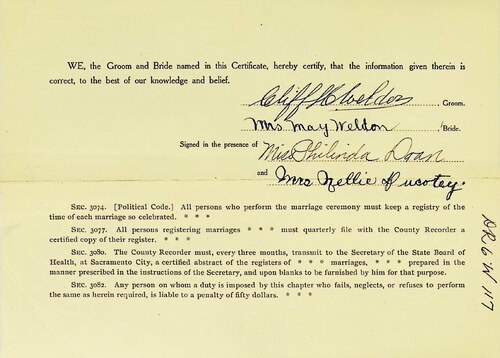 WE, the Groom and Bride named in this Certificate, hereby certify, that the information given therein is
correct, to the best of our knowledge and belief.
Cliff H Weldon Groom.
Mrs May Weldon Bride.
Signed in the presence of Miss Philinda Doan
and Mrs Nellie Ducotey.
SEC. 3074. [Political Code.] All persons who perform the marriage ceremony must keep a registry of
the time of each marriage so celebrated. * * *
SEC. 3077. All persons registering marriages * * * must quarterly file with the County Recorder a
certified copy of their register. * * *
SEC. 3080. The County Recorder must, every three months, transmit to the Secretary of the State Board of
Health, at Sacramento City, a certified abstract of the registers of * * * marriages, * * * prepared in the
manner prescribed in the instructions of the Secretary, and upon blanks to be furnished by him for that purpose.
SEC. 3082. Any person on whom a duty is imposed by this chapter who fails, neglects, or refuses to perform
the same as herein required, is liable to a penalty of fifty dollars. * * *
DR 6 W 117